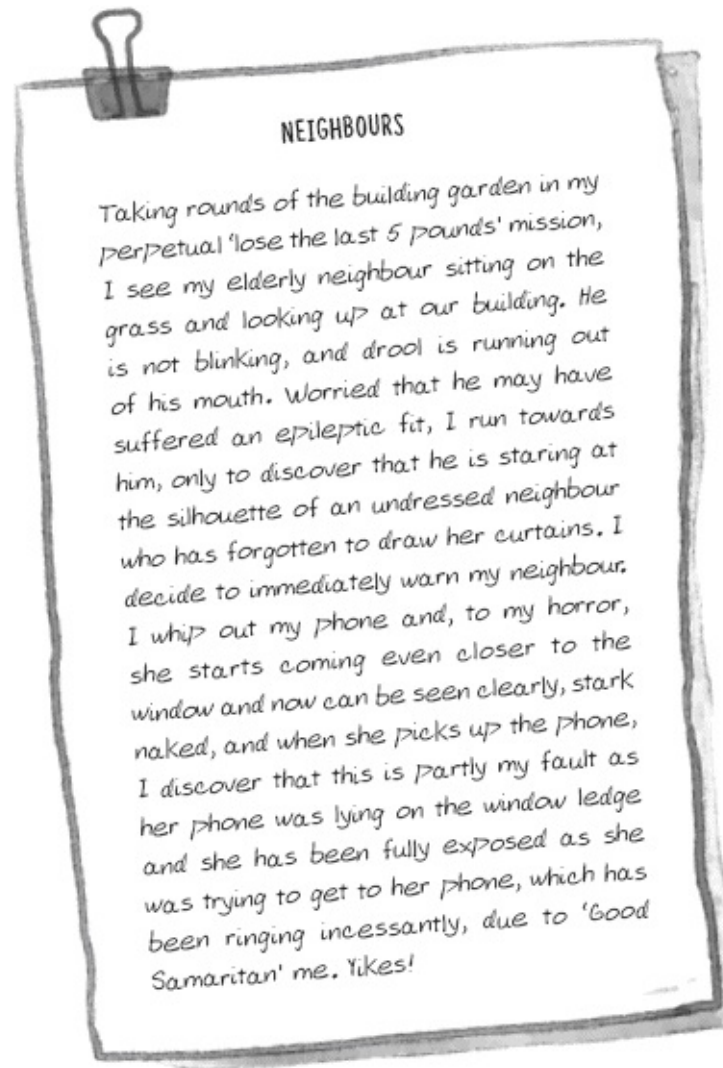 NEIGHBOURS
Taking rounds of the building garden in my
perpetual 'lose the last 5 pounds' mission,
I see my elderly neighbour sitting on the
grass and looking up at our building. He
is not blinking, and drool is running out
of his mouth. Worried that he may have
suffered an epileptic fit, I run towards
him, only to discover that he is staring at
the silhouette of an undressed neighbour
who has forgotten to draw her curtains. I
decide to immediately warn my neighbour.
I whip out my phone and, to my horror,
she starts coming even closer to the
window and now can be seen clearly, stark
naked, and when she picks up the phone,
I discover that this is partly my fault as
her phone was lying on the window ledge
and she has been fully exposed as she
was trying to get to her phone, which has
been ringing incessantly, due to 'Good
Samaritan' me. Yikes!